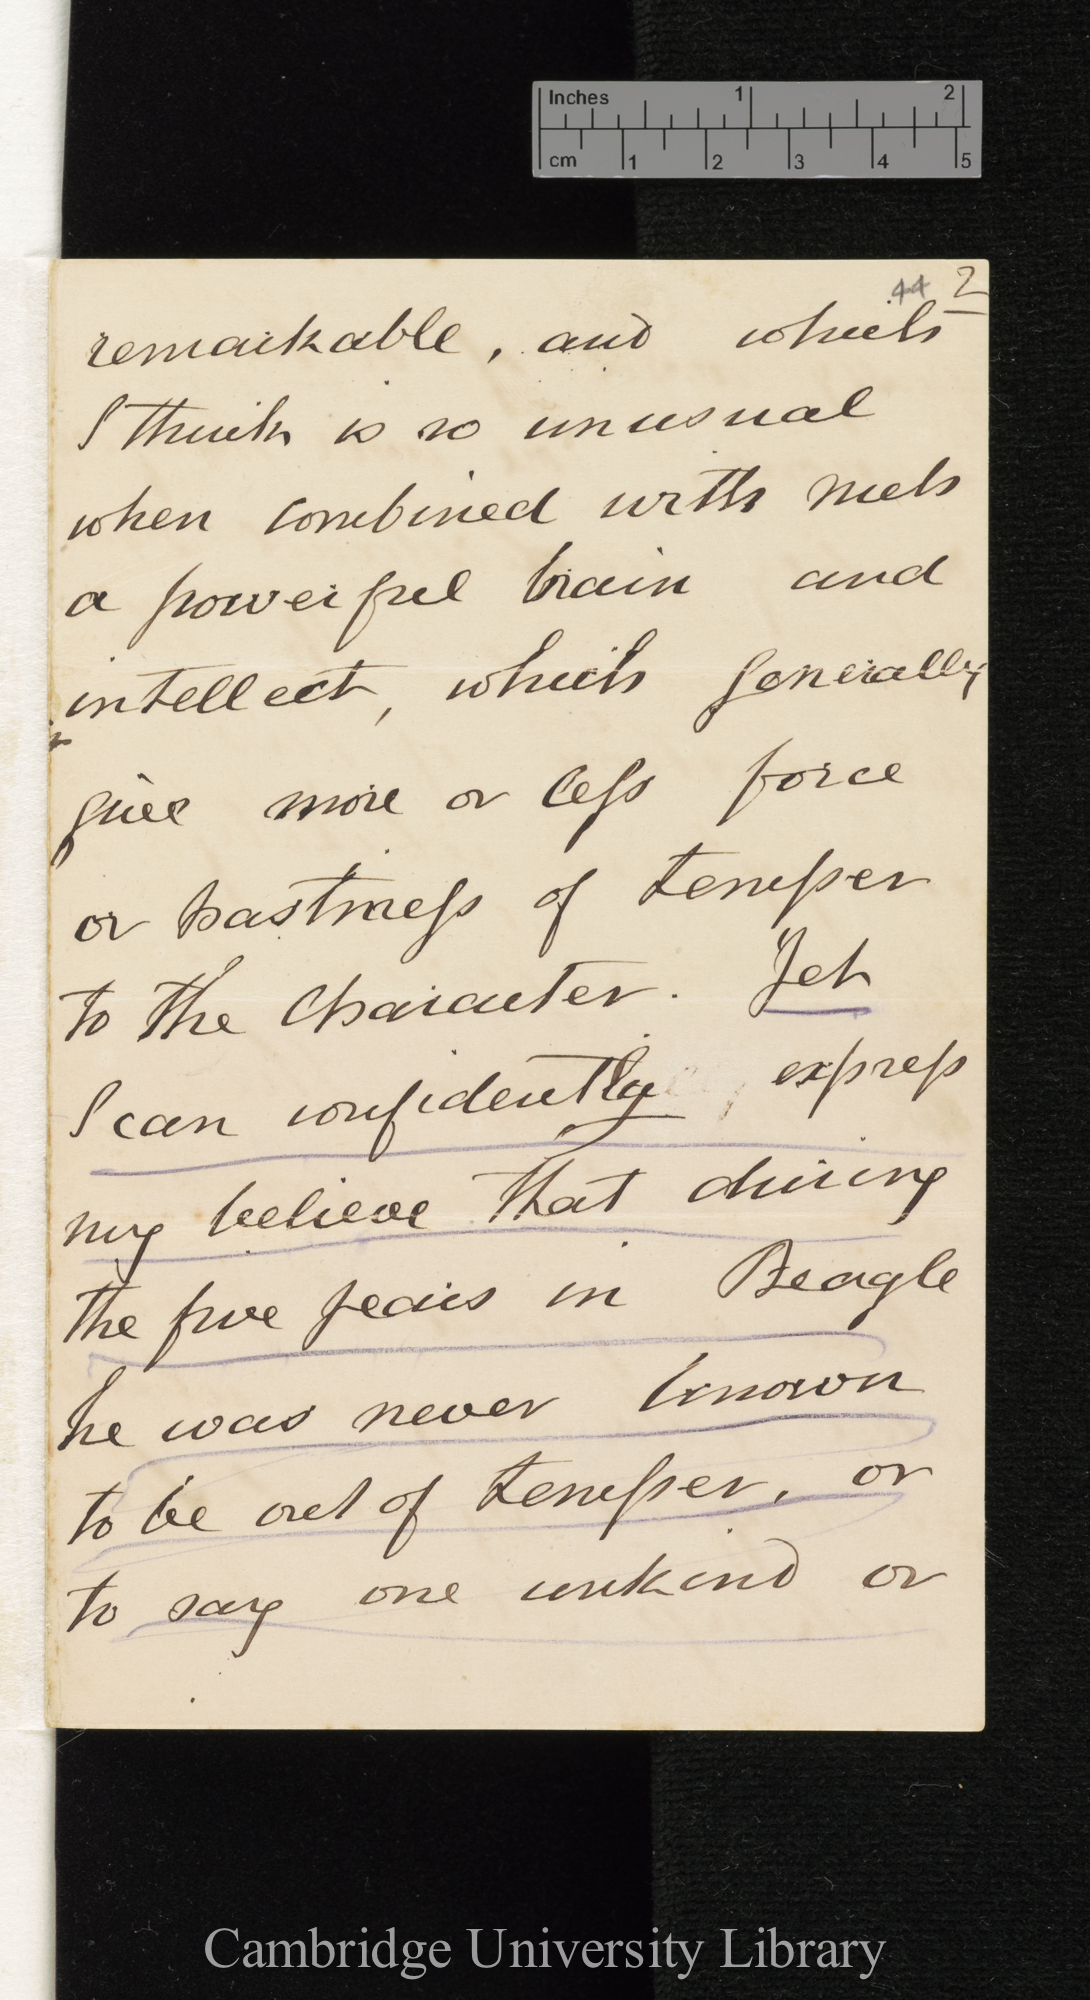 Inches 1 2
cm 1 2 3 4 5
44 2
remarkable, and which
I think is so unusual
when combined with such
a powerful brain and
intellect, which generally
give more or less force
or hastiness of temper
to the character. Yet
I can confidently express
my believe that during
the five years in Beagle
he was never known
to be out of temper, or
to say one unkind or
Cambridge University Library